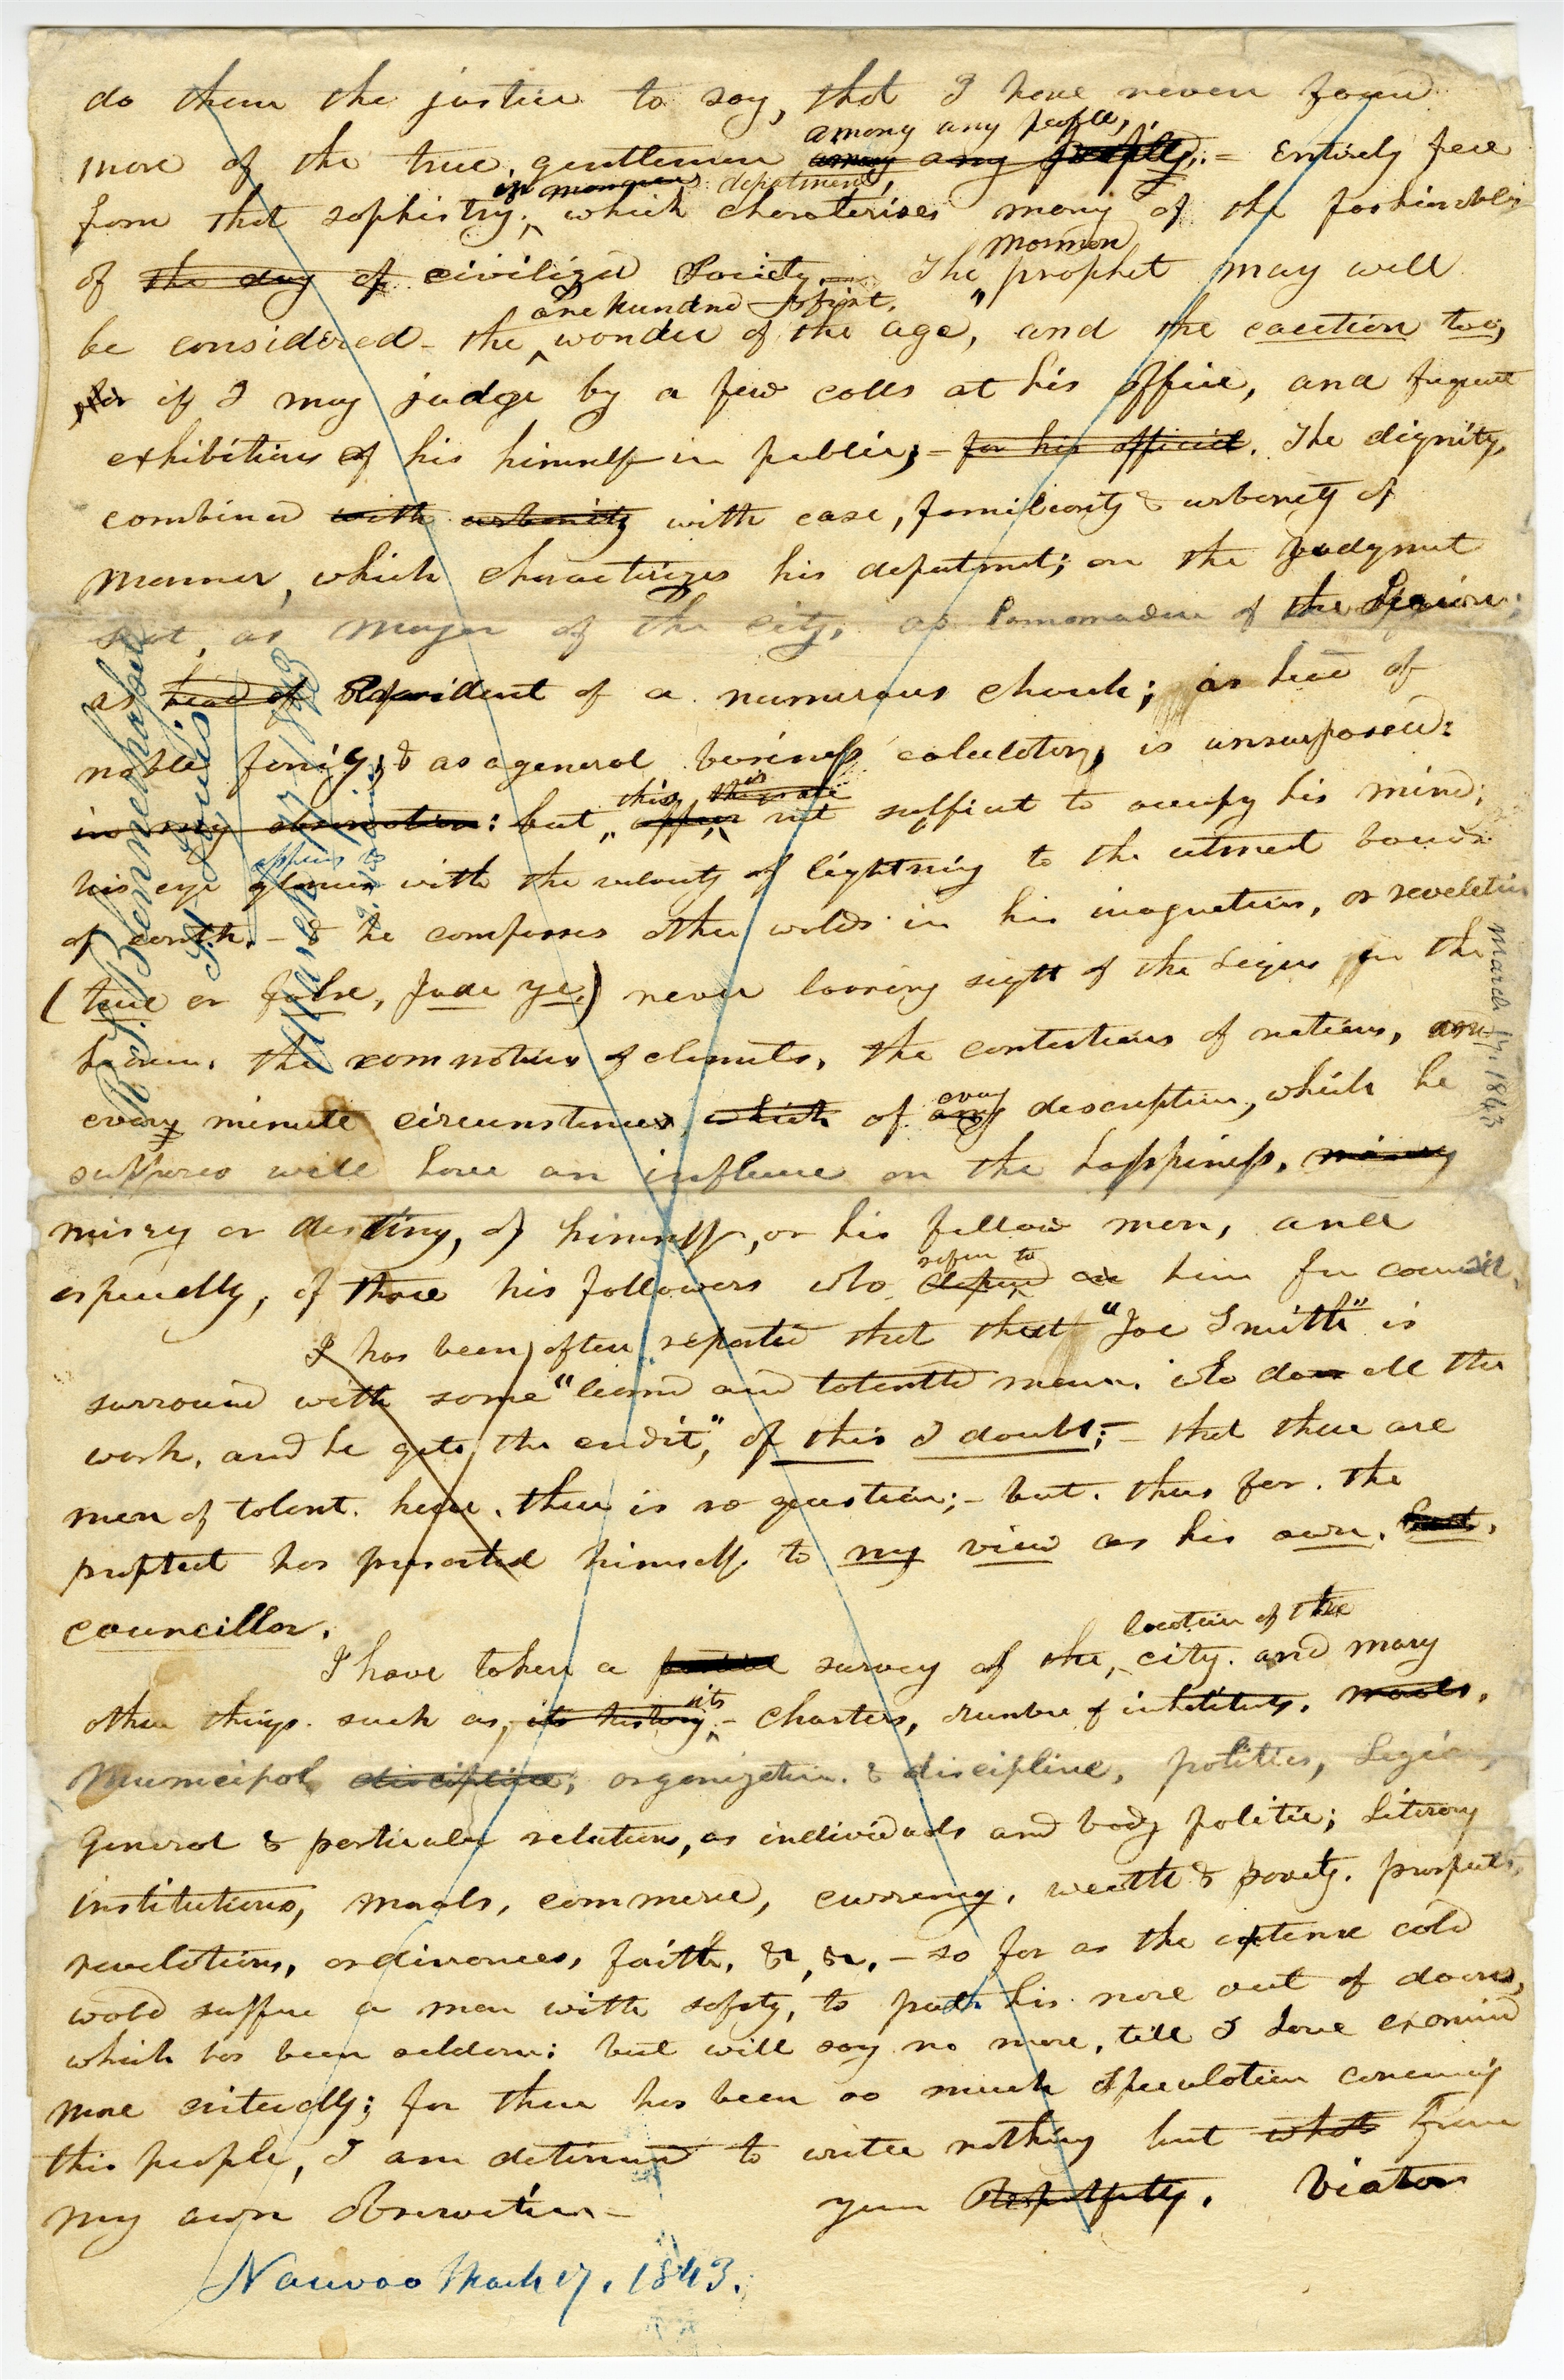 do them the justice to say, that I have never found
among any people,
more of the true gentlemen among any people;= Entirely free
in manners deportment,
from that sophistry, which charaterises many of the fashionables
of the day of civilized Society.— The Mormon prophet may well
one hundred & first.
be considered the wonder of the age, and the caution too,
if I may judge by a few calls at his office, and frequent
exhibitions of his himself in public;— for his official. The dignity,
combined with urbanity with ease, familiarity & urbanity of
manner, which characterizes his deportment; on the Judgment
seat, as Mayor of the city, as Commander of the Legion;
as head of President of a numerous church; as head of
noble family, & as a general business calculator, is unsurpassed:
in my observation: but this is not sufficient to occupy his mind;
appears to
his eye glances with the velocity of lightning to the utmost bounds
of earth,— & he composes other worlds in his imagination, or revelation
(true or false, Judge ye,) never loosing sight of the signs in the
heavens, the commotions of elements, the contentions of nations, and
every minute circumstance, which of any every description, which he
supposes will have an influence on the happiness, misery
misery or destiny, of himself, or his fellow men, and
refer to
especially, of those his followers who depend on him for council.
I has been often reported that that "Joe Smith" is
surround with some "learned and talented men who does all the
work, and he gets the credit," of this I doubt;— that there are
men of talent here, there is no question;— but thus far the
prophet has presented himself to my view as his own best
councillor.
location of the
I have taken a survey of the city and many
other things such as, its history, its— Charters, number of inhabitants, morals,
Municipal discipline, organization & discipline, politics, Legion,
General & particular relations, as individuals and body politic; Literary
institutions, morals, commerce, currency, wealth & poverty, prospects,
revelations, ordinances, faith, &c, &c,— so far as the extense cold
would suffer a man with safety, to put his nose out of doors,
which has been seldom: but will say no more, till I have examined
more critically; for there has been so much speculation concerning
this people, I am determined to write nothing but what from
my own observation— your Respectfully, Viator
Nauvoo March 17, 1843.
R. S. Blennerhassett
St Louis
March 17. 1843
March 17. 1843